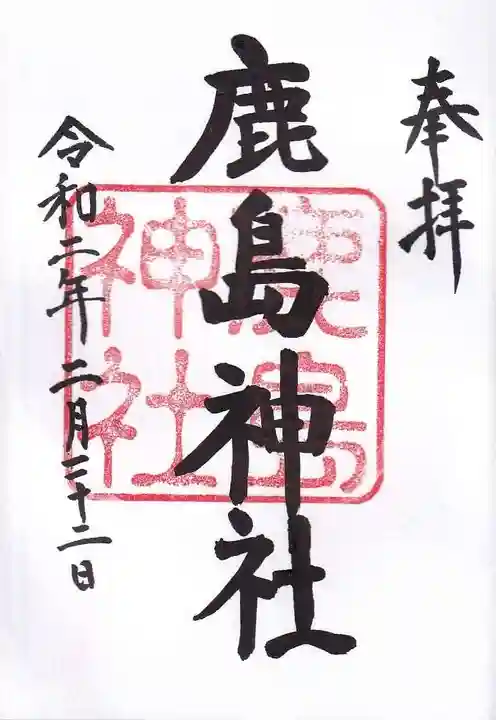 奉拝
鹿島神社
鹿島
神社
令和二年 二月二十二日